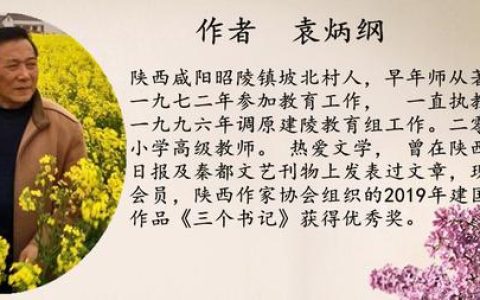 作者 袁炳纲
陕西咸阳昭陵镇坡北村人，早年师从著
一九七二年参加教育工作， 一直执教
一九九六年调原建陵教育组工作。二零
小学高级教师。 热爱文学， 曾在陕西
日报及秦都文艺刊物上发表过文章，现
会员，陕西作家协会组织的2019年建国
作品《三个书记》获得优秀奖。